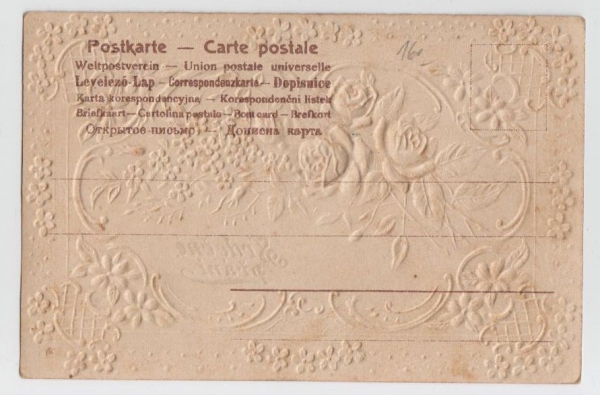 Postkarte — Carte postale
160
Weltpostverein — Union postale universelle
Levelező-Lap — Correspondenzkarte — Dopisnice
Karta korespondencyjna — Korespondenční lístek
Briefkaart — Cartolina postale — Post card — Brefkort
Открытое письмо — Дописна карта